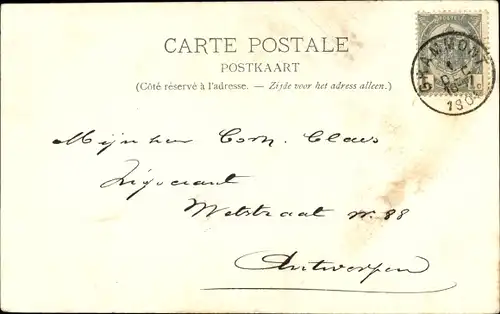 CARTE POSTALE
POSTKAART
(Côté réservé à l'adresse. — Zijde voor het adress alleen.)
GRAMMONT
Mijnheer Corn. Claes
Négociant
Wetstraat nr. 88
Antwerpen